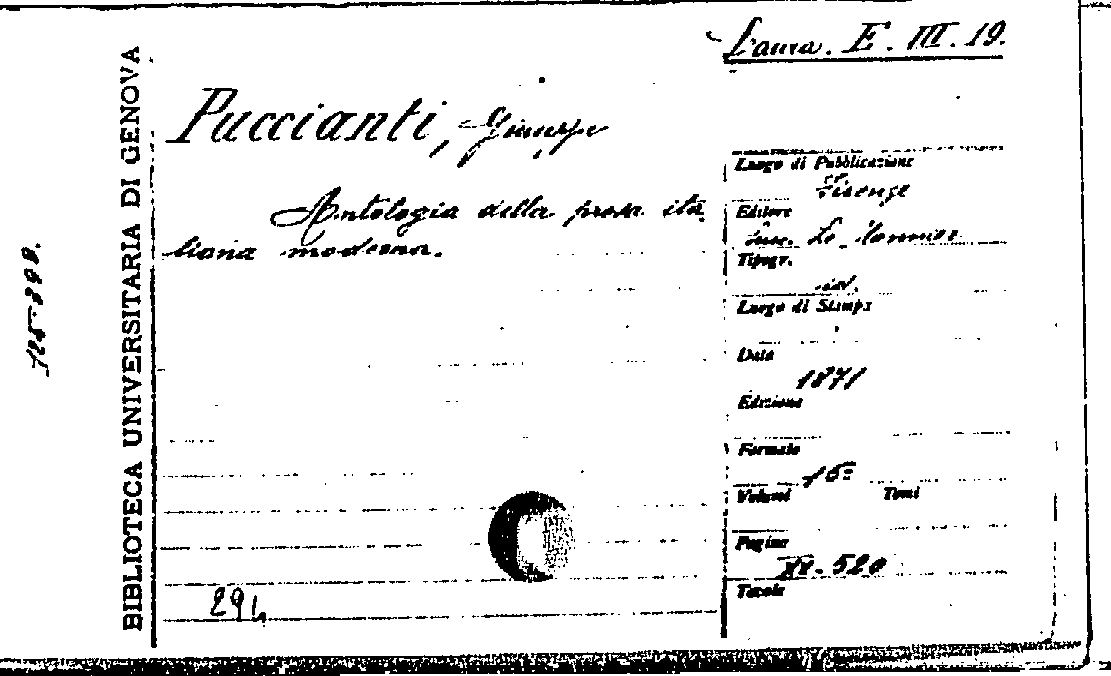 Laura. E. III. 19.
BIBLIOTECA UNIVERSITARIA DI GENOVA
Puccianti, Giuseppe
Antologia della prosa ita
liana moderna.
Luogo di Pubblicazione
Firenze
Editore
Suc. Le Monnier
Tipogr.
id.
Luogo di Stampa
Data
1871
Edizione
Formato
16º
Volumi Tomi
Pagine
XV. 520
Tavole